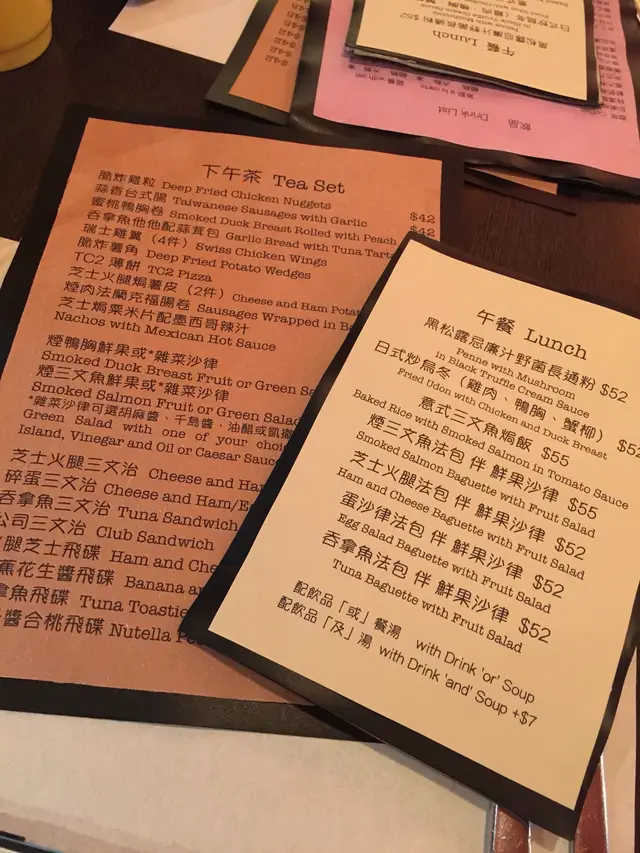 下午茶 Tea Set
脆炸雞粒 Deep Fried Chicken Nuggets
蒜香台式腸 Taiwanese Sausages with Garlic $42
蜜桃鴨胸卷 Smoked Duck Breast Rolled with Peach $42
吞拿魚他他配蒜茸包 Garlic Bread with Tuna Tarta
瑞士雞翼（4件）Swiss Chicken Wings
脆炸薯角 Deep Fried Potato Wedges
TC2 薄餅 TC2 Pizza
芝士火腿焗薯皮（2件）Cheese and Ham Potat
煙肉法蘭克福腸卷 Sausages Wrapped in Ba
芝士焗粟米片配墨西哥辣汁
Nachos with Mexican Hot Sauce
煙鴨胸鮮果或*雜菜沙律
Smoked Duck Breast Fruit or Green Sa
煙三文魚鮮果或*雜菜沙律
Smoked Salmon Fruit or Green Salad
*雜菜沙律可選胡麻醬、千島醬、油醋或凱撒
Green Salad with one of your choic
Island, Vinegar and Oil or Caesar Sauce
芝士火腿三文治 Cheese and Ham
碎蛋三文治 Cheese and Ham/E
吞拿魚三文治 Tuna Sandwich
公司三文治 Club Sandwich
火腿芝士飛碟 Ham and Che
蕉花生醬飛碟 Banana a
拿魚飛碟 Tuna Toastie
醬合桃飛碟 Nutella Pe
午餐 Lunch
黑松露忌廉汁野菌長通粉 $52
Penne with Mushroom
in Black Truffle Cream Sauce
日式炒烏冬（雞肉、鴨胸、蟹柳） $52
Fried Udon with Chicken and Duck Breast
意式三文魚焗飯 $55
Baked Rice with Smoked Salmon in Tomato Sauce
煙三文魚法包 伴 鮮果沙律 $55
Smoked Salmon Baguette with Fruit Salad
芝士火腿法包 伴 鮮果沙律 $52
Ham and Cheese Baguette with Fruit Salad
蛋沙律法包 伴 鮮果沙律 $52
Egg Salad Baguette with Fruit Salad
吞拿魚法包 伴 鮮果沙律 $52
Tuna Baguette with Fruit Salad
配飲品「或」餐湯 with Drink 'or' Soup
配飲品「及」湯 with Drink 'and' Soup +$7
午餐 Lunch
黑松露忌廉汁野菌長通粉 $52
Penne with Mushroom
in Black Truffle Cream Sauce
日式炒烏冬（雞肉、鴨胸
飲品
Drink List
$42
$42
$42
$42
$42